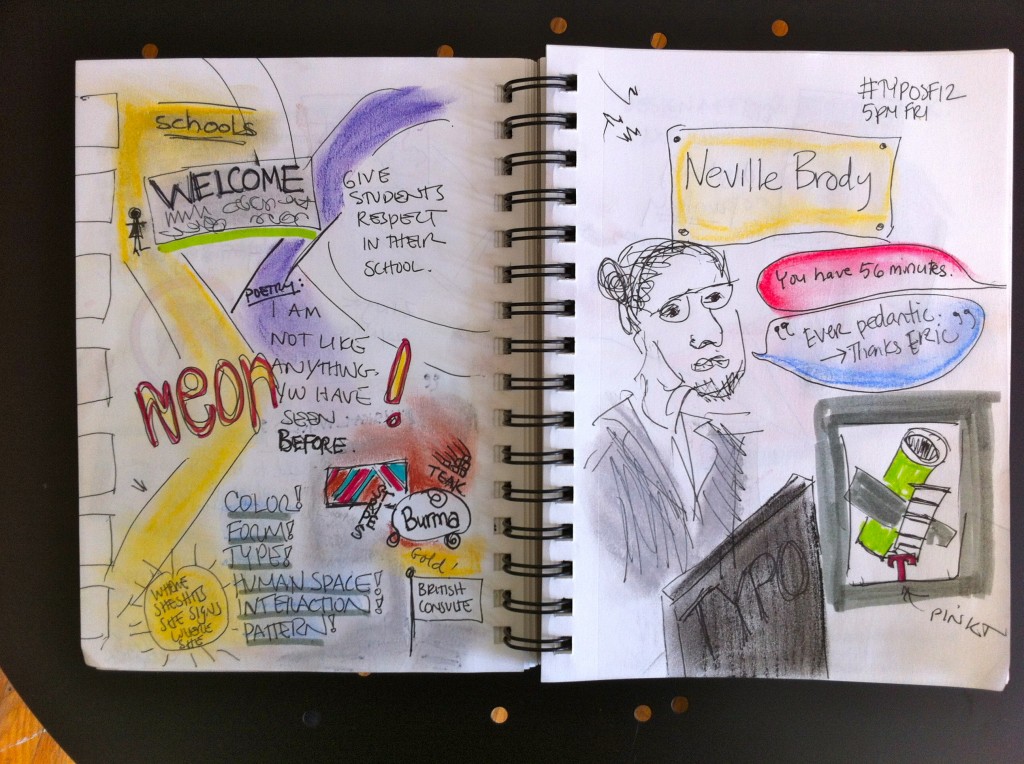 schools
WELCOME
GIVE
STUDENTS
RESPECT
IN THEIR
SCHOOL.
POETRY:
I AM
NOT LIKE
ANYTHING
YOU HAVE
SEEN
BEFORE.
neon!
TEAK
Burma
Gold!
BRITISH
CONSULTE
COLOR!
FORM!
TYPE!
HUMAN SPACE
INTERACTION!
PATTERN!
SITE SIGNS
#TYPOSF12
5PM FRI
Neville Brody
You have 56 minutes.
"Ever pedantic."
→Thanks ERIC
TYPO
PINK T